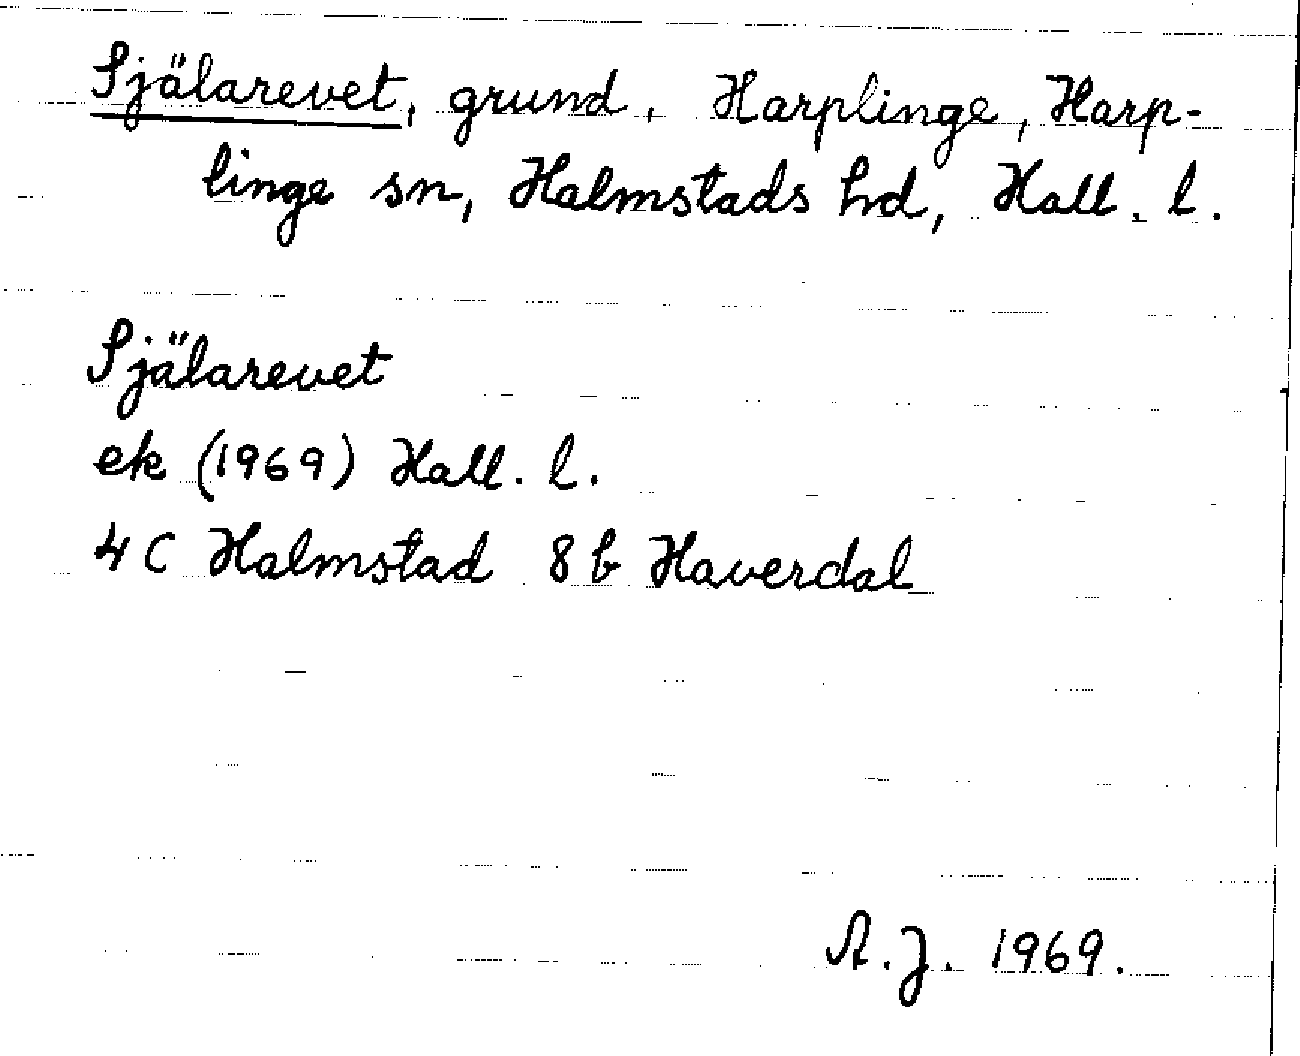 Själarevet, grund, Harplinge, Harp-
linge sn, Halmstads hd, Hall. l.
Själarevet
ek (1969) Hall. l.
4 C Halmstad 8 b Haverdal
A.J. 1969.